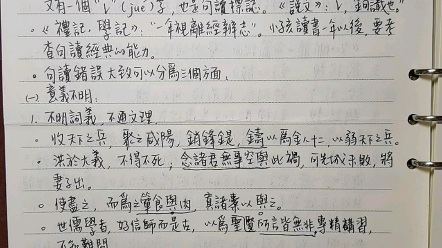 又有一個"レ"(jué)字，也是句讀標誌。《說文》："レ，鉤識也。"
·《禮記·學記》："一年視離經辨志"。小孩讀書一年以後，要考
查句讀經典的能力。
·句讀錯誤大致可以分為三個方面：
㈠ 意義不明：
1. 不明詞義，不通文理。
·收天下之兵，聚之咸陽，銷鋒鍉，鑄以為金人十二，以弱天下之兵。
·洪於大義，不得不死；念諸君無事空與此禍，可先城未敗，將
妻子出。
·使盡之，而為之簞食與肉，真諸橐以與之。
·世儒學者，好信師而是古，以為聖賢所言皆無非，專精講習，
不知難問。